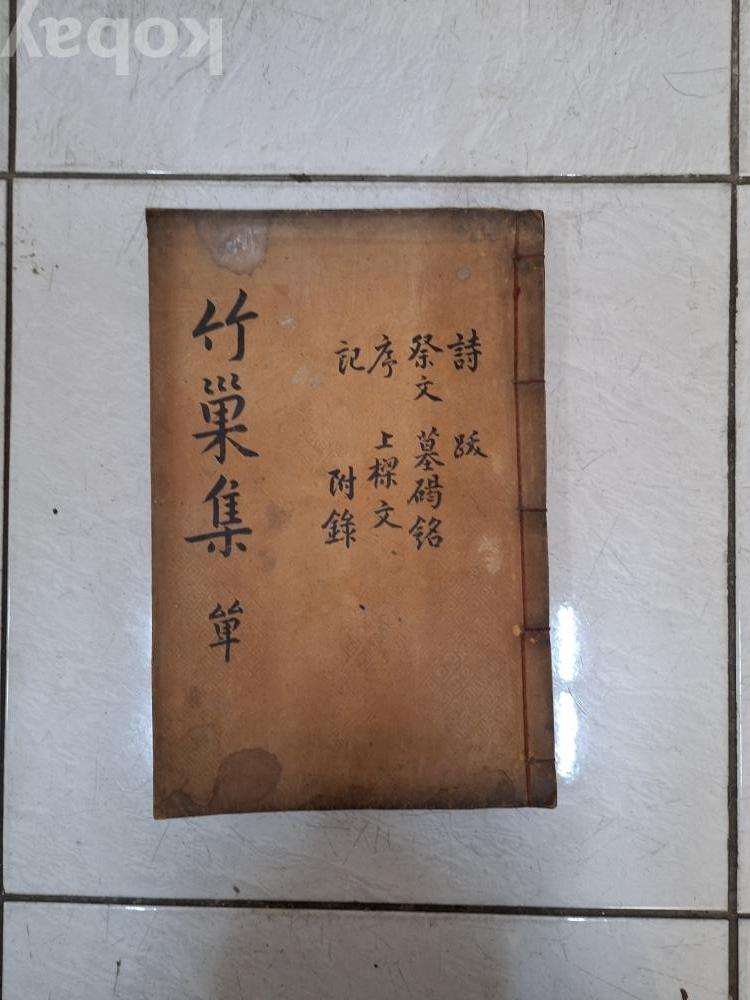 kobay
竹巢集 單
詩 跋
祭文 墓碣銘
序 上樑文
記 附錄